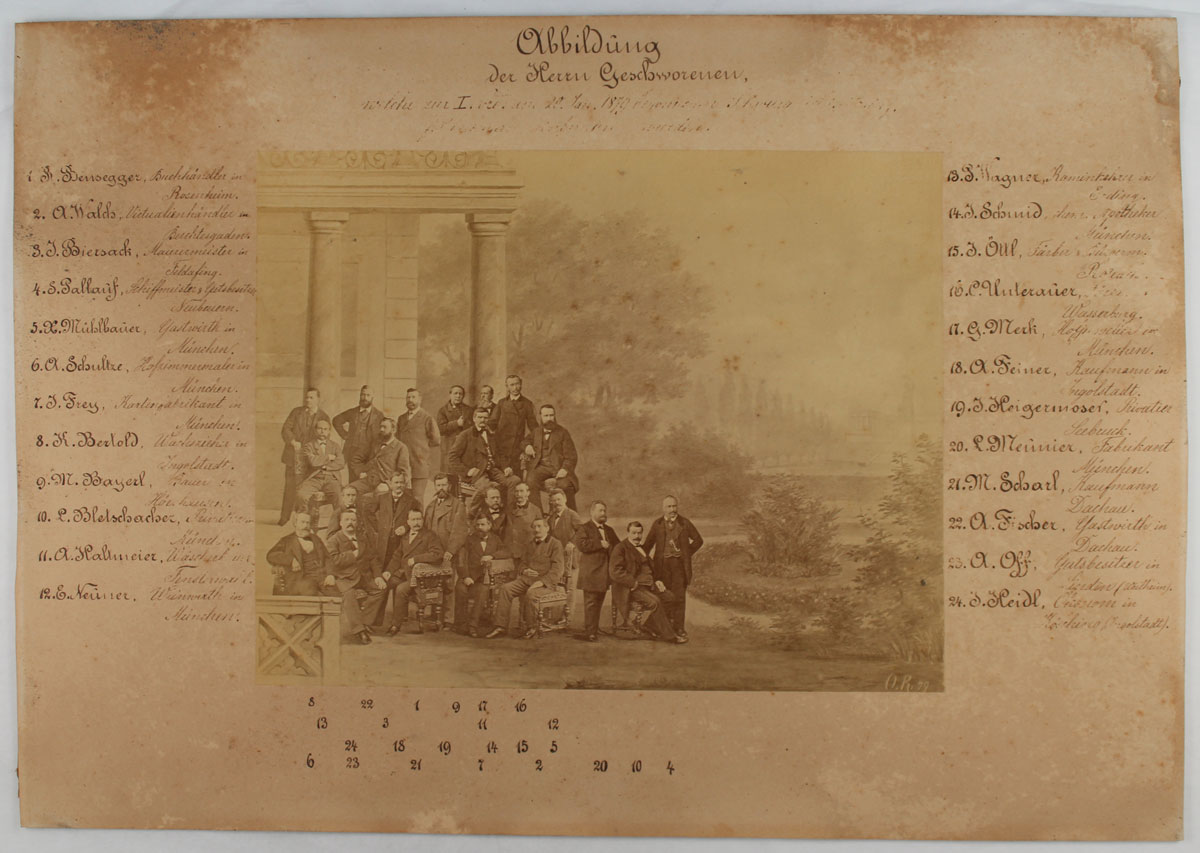 Abbildung
der Herrn Geschworenen,
welche zur I. 1879
wurden.
1. Bensegger, Buchhändler in
Rosenheim.
2. A. Walch, Victualienhändler in
Berchtesgaden.
3. J. Biersack, Maurermeister in
Feldafing.
4. S. Pallauf, Schiffmeister & Gutsbesitzer
Neubeuern.
5. X. Mühlbauer, Gastwirth in
München.
6. A. Schultze, Hofzimmermaler in
München.
7. J. Frey, Kartenfabrikant in
München.
8. K. Bertold, Wachszieher in
Ingolstadt.
9. M. Bayerl, Bauer in
10. L. Bletschacher,
11. A. Haltmeier, in
12. E. Neuner, Weinwirth in
München.
13. Wagner, Kaminkehrer in
Erding.
14. J. Schmid, Apotheker
München.
15. J. Öttl, Färber
16. C. Unterauer,
Wasserburg.
17. G. Merk, in
München.
18. A. Feiner, Kaufmann in
Ingolstadt.
19. J. Heigermoser, Privatier
Seebruck.
20. L. Meunier, Fabrikant
München.
21. M. Scharl, Kaufmann
Dachau.
22. A. Fischer, Gastwirth in
Dachau.
23. A. Off, Gutsbesitzer in
24. J. Heidl, in
O. R. 79
8 22 1 9 17 16
13 3 11 12
24 18 19 14 15 5
6 23 21 7 2 20 10 4